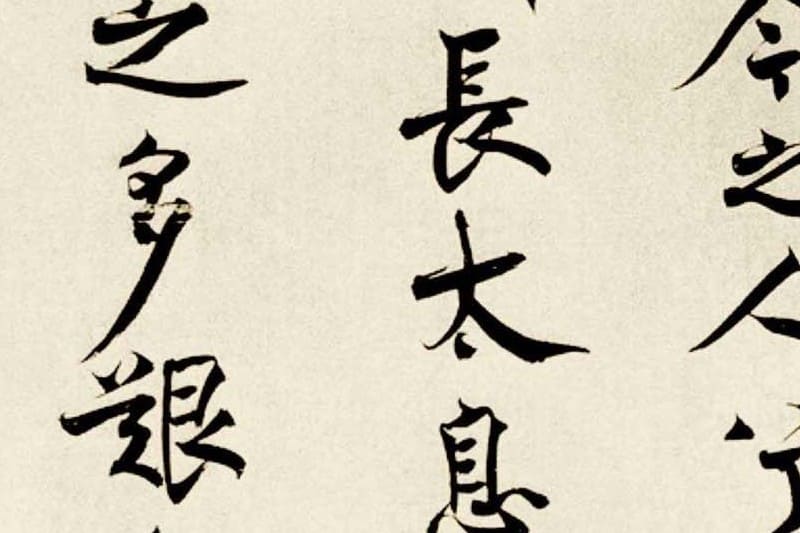 今之人兮
長太息
之多艱